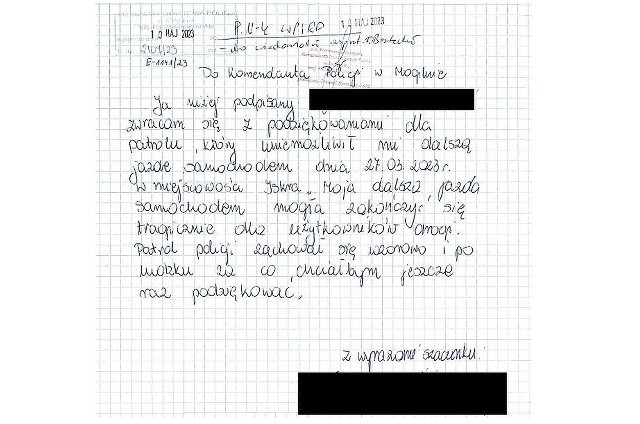 10 MAJ 2023
12 MAJ 2023
2101/23
E-1141/23
Do Komendanta Policji w Mogilnie
Ja niżej podpisany
zwracam się z podziękowaniami dla
patrolu, który uniemożliwił mi dalszą
jazdę samochodem dnia 27.03.2023 r.
w miejscowości Iskra. Moja dalsza jazda
samochodem mogła zakończyć się
tragicznie dla użytkowników drogi.
Patrol policji zachował się wzorowo i po
ludzku za co chciałbym jeszcze
raz podziękować.
Z wyrazami szacunku